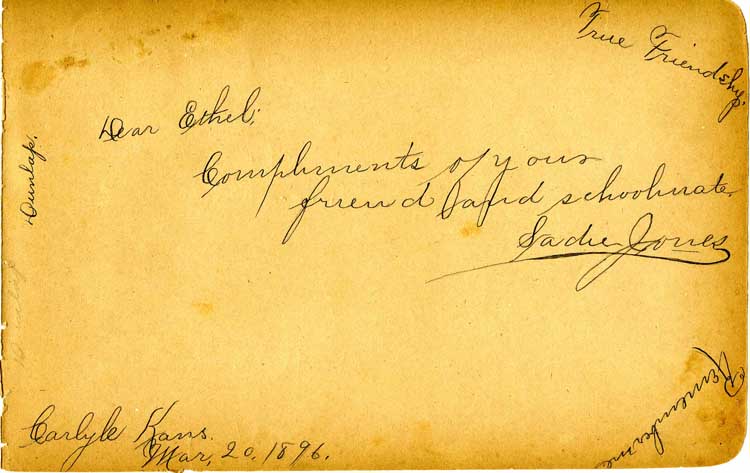 True Friendship.
Dear Ethel;
Compliments of your
friend and schoolmate.
Sadie Jones
Dunlap.
Carlyle Kans.
Mar, 20, 1896.
Remembrance